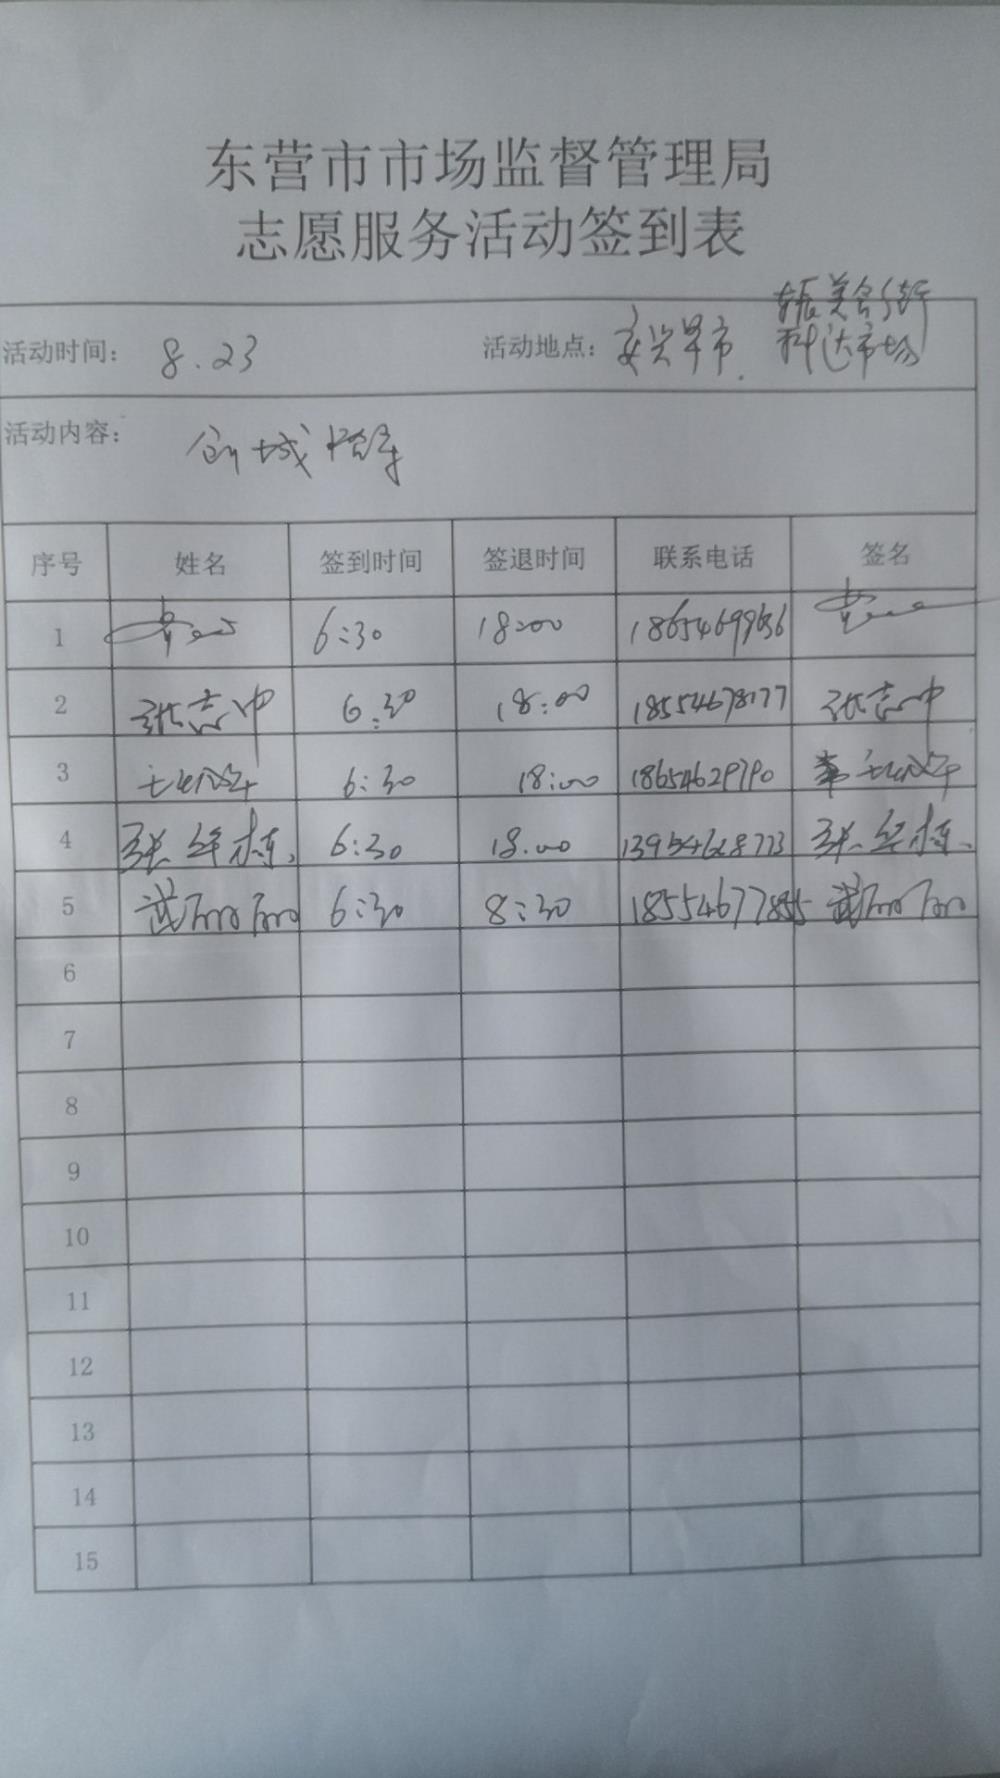 东营市市场监督管理局
志愿服务活动签到表
活动时间: 8.23 活动地点: 安兴早市. 振美食街
科达市场
活动内容: 创城检库
序号 姓名 签到时间 签退时间 联系电话 签名
1 6:30 18:00 18654699636
2 张志中 6:30 18:00 18554678177 张志中
3 6:30 18:00 18654629790
4 张华栋. 6:30 18:00 13954628773 张华栋.
5 武丽丽 6:30 8:30 18554677855 武丽丽
6
7
8
9
10
11
12
13
14
15